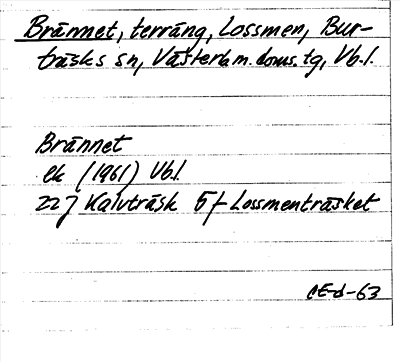 Brännet, terräng, Lossmen, Bur-
träsks sn, Västerb.m. doms. tg, Vb.l.
Brännet
ek (1961) Vbl.
22J Kalvträsk 5f Lossmenträsket
CE-d-63